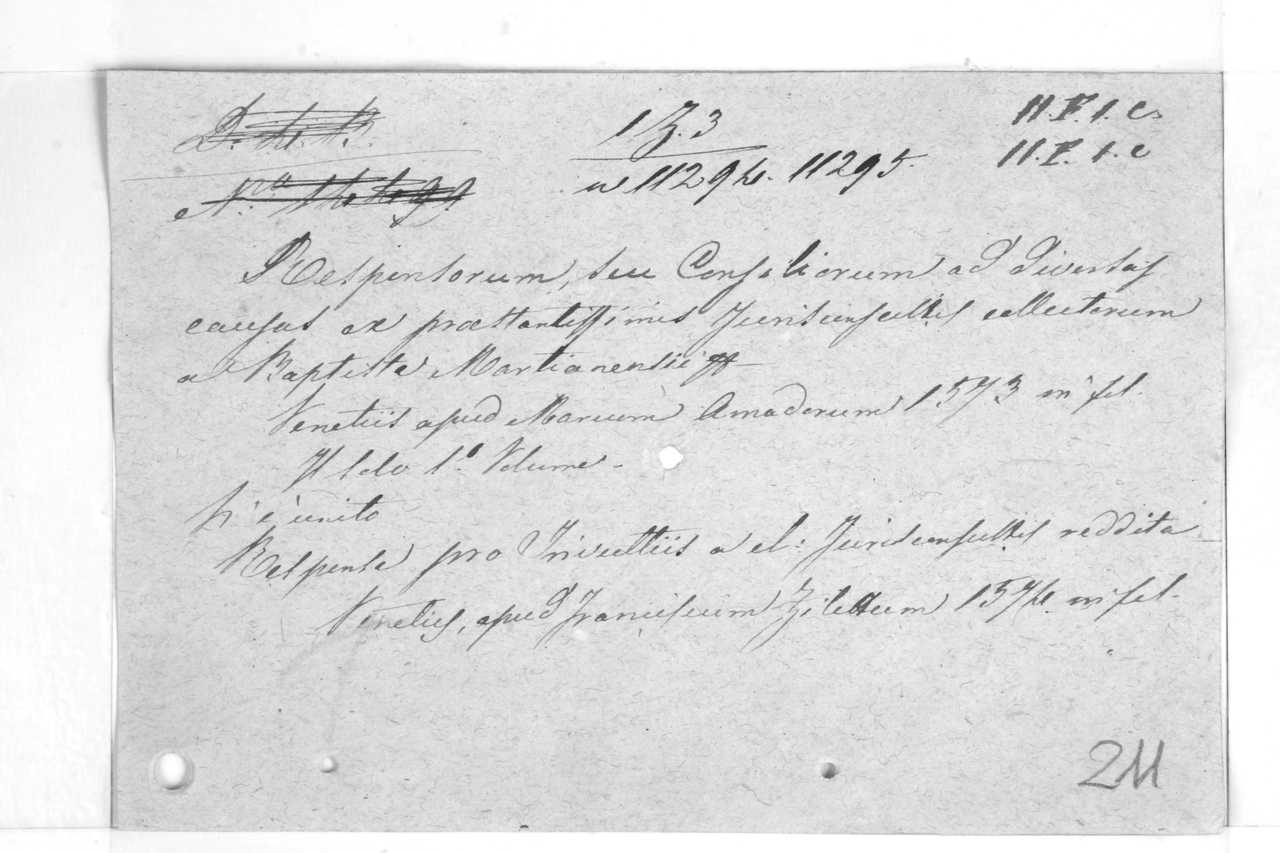 1 Z. 3
11.F.1.c.
11294. 11295.
11.F.1.c
Responsorum, seu Consiliorum ad diversas
causas ex praestantissimis Jurisconsultis collectorum
a Baptista
Venetiis apud Amadorum 1573 in fol.
Il solo 1.° Volume.
V'è unito
Responsa pro Trivultiis a cl: Jurisconsultis reddita
Venetiis, apud Franciscum Zilettum 1574 in fol.
211